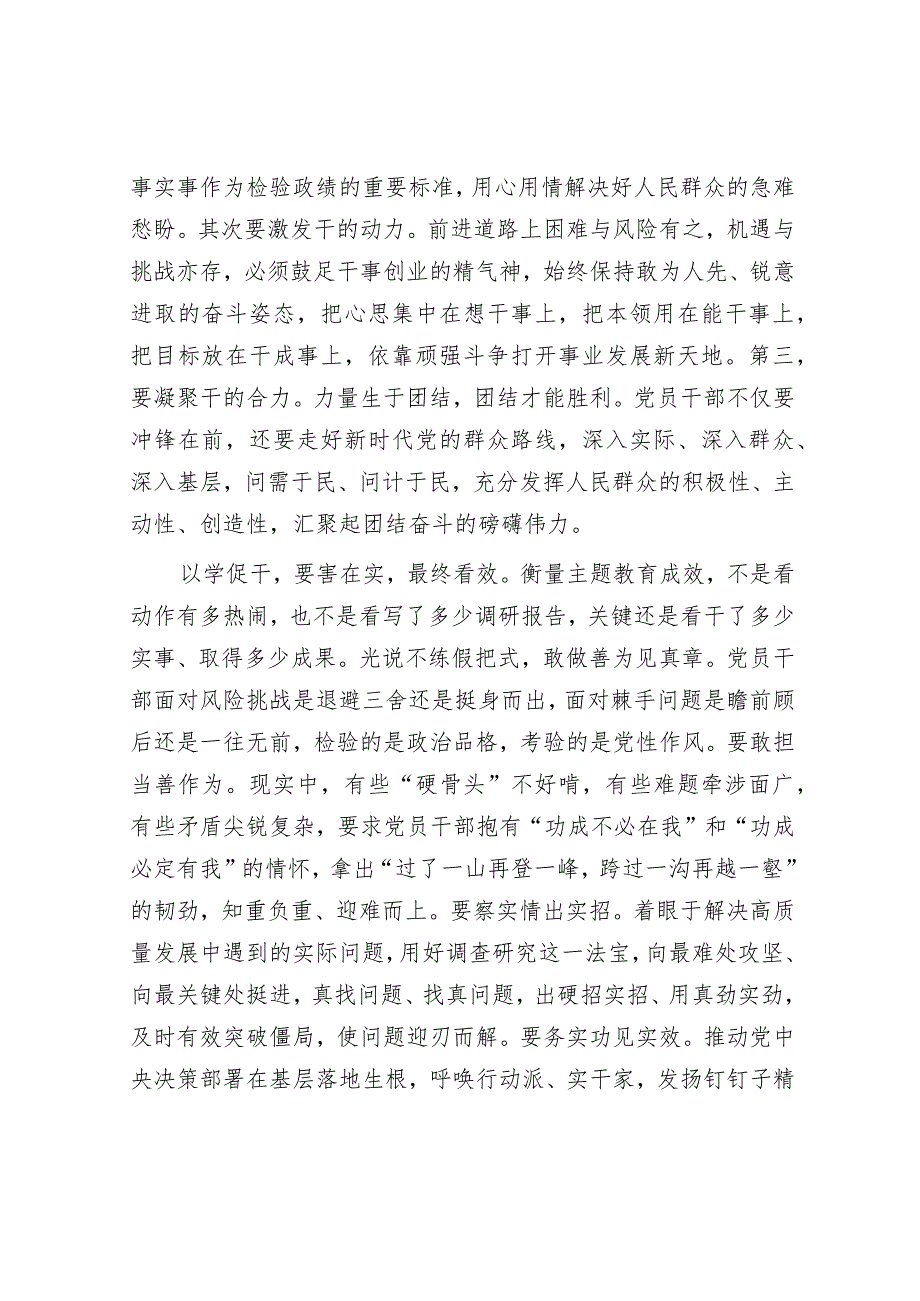 事实事作为检验政绩的重要标准，用心用情解决好人民群众的急难
愁盼。其次要激发干的动力。前进道路上困难与风险有之，机遇与
挑战亦存，必须鼓足干事创业的精气神，始终保持敢为人先、锐意
进取的奋斗姿态，把心思集中在想干事上，把本领用在能干事上，
把目标放在干成事上，依靠顽强斗争打开事业发展新天地。第三，
要凝聚干的合力。力量生于团结，团结才能胜利。党员干部不仅要
冲锋在前，还要走好新时代党的群众路线，深入实际、深入群众、
深入基层，问需于民、问计于民，充分发挥人民群众的积极性、主
动性、创造性，汇聚起团结奋斗的磅礴伟力。
以学促干，要害在实，最终看效。衡量主题教育成效，不是看
动作有多热闹，也不是看写了多少调研报告，关键还是看干了多少
实事、取得多少成果。光说不练假把式，敢做善为见真章。党员干
部面对风险挑战是退避三舍还是挺身而出，面对棘手问题是瞻前顾
后还是一往无前，检验的是政治品格，考验的是党性作风。要敢担
当善作为。现实中，有些“硬骨头”不好啃，有些难题牵涉面广，
有些矛盾尖锐复杂，要求党员干部抱有“功成不必在我”和“功成
必定有我”的情怀，拿出“过了一山再登一峰，跨过一沟再越一壑”
的韧劲，知重负重、迎难而上。要察实情出实招。着眼于解决高质
量发展中遇到的实际问题，用好调查研究这一法宝，向最难处攻坚、
向最关键处挺进，真找问题、找真问题，出硬招实招、用真劲实劲，
及时有效突破僵局，使问题迎刃而解。要务实功见实效。推动党中
央决策部署在基层落地生根，呼唤行动派、实干家，发扬钉钉子精